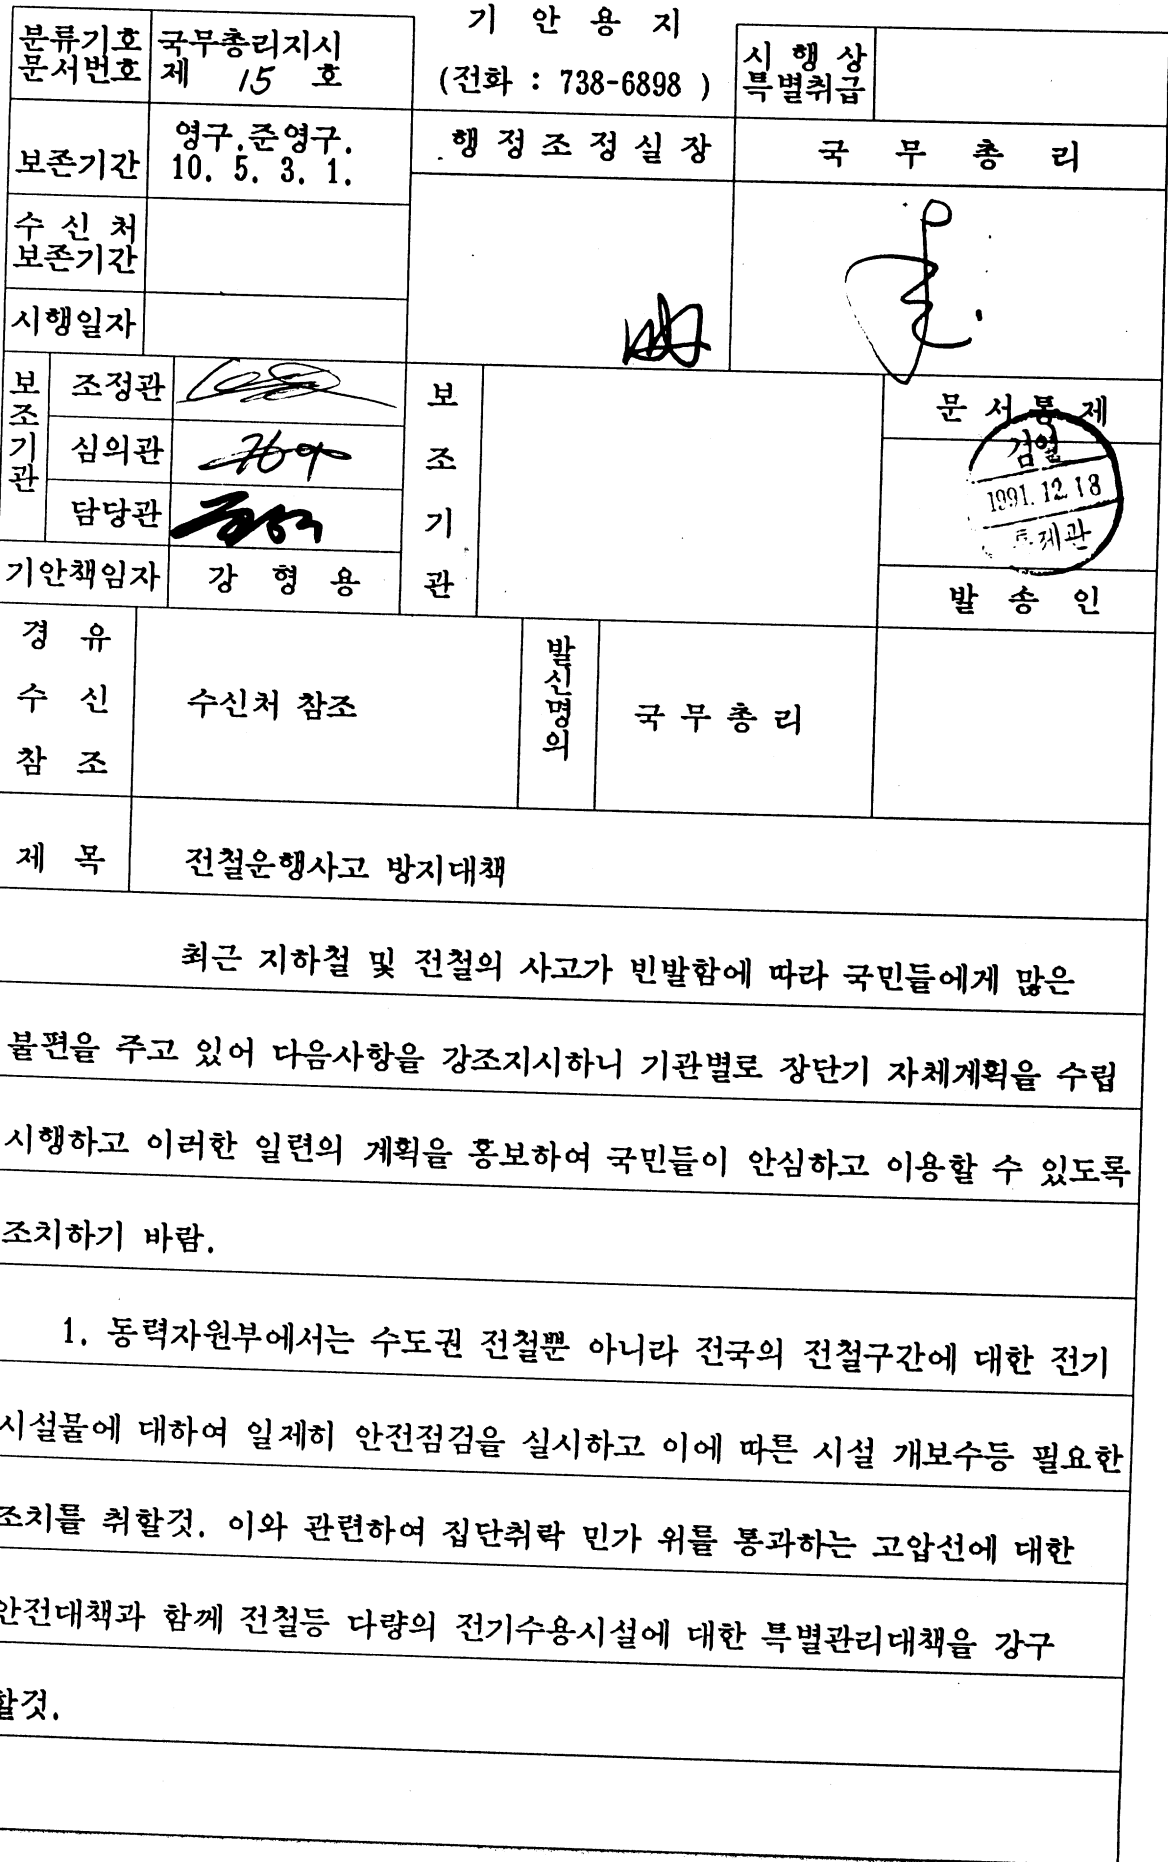 기 안 용 지
분류기호 국무총리지시
문서번호 제 15 호
(전화 : 738-6898 )
시 행 상
특별취급
보존기간 영구.준영구.
10. 5. 3. 1.
행 정 조 정 실 장
국 무 총 리
수 신 처
보존기간
시행일자
보조기관
조정관
심의관
담당관
보조기관
문 서 통 제
검열
1991. 12. 18
통제관
기안책임자 강 형 용
발 송 인
경 유
수 신
참 조
수신처 참조
발신명의
국 무 총 리
제 목 전철운행사고 방지대책
최근 지하철 및 전철의 사고가 빈발함에 따라 국민들에게 많은
불편을 주고 있어 다음사항을 강조지시하니 기관별로 장단기 자체계획을 수립
시행하고 이러한 일련의 계획을 홍보하여 국민들이 안심하고 이용할 수 있도록
조치하기 바람.
1. 동력자원부에서는 수도권 전철뿐 아니라 전국의 전철구간에 대한 전기
시설물에 대하여 일제히 안전점검을 실시하고 이에 따른 시설 개보수등 필요한
조치를 취할것. 이와 관련하여 집단취락 민가 위를 통과하는 고압선에 대한
안전대책과 함께 전철등 다량의 전기수용시설에 대한 특별관리대책을 강구
할것.